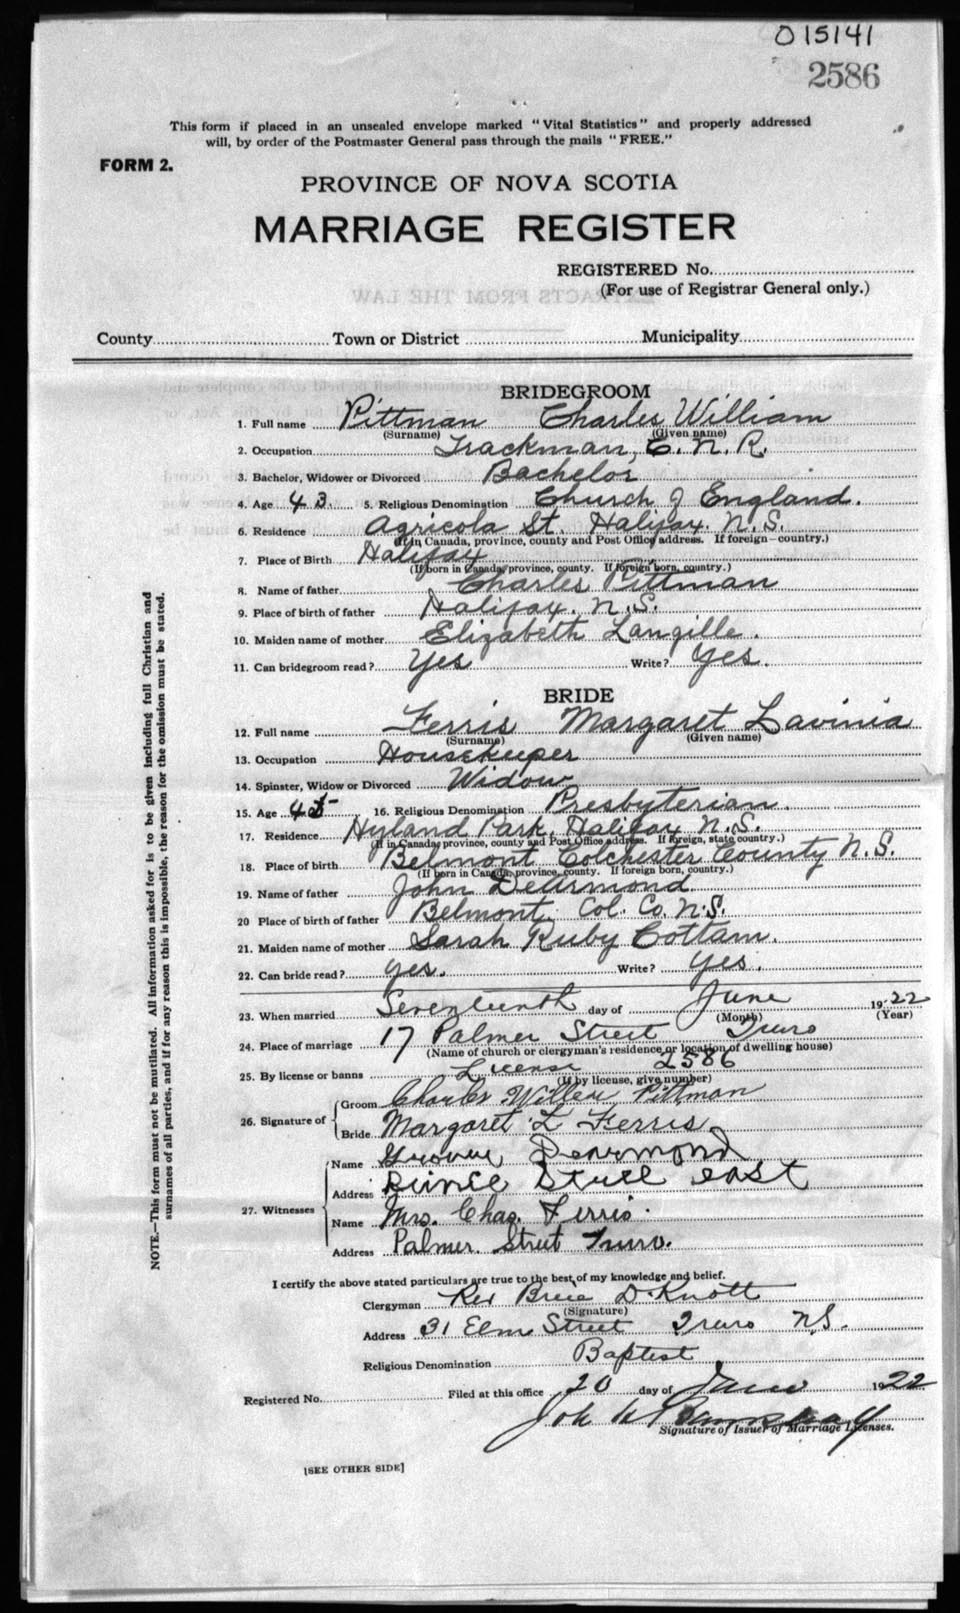 015141
2586
This form if placed in an unsealed envelope marked "Vital Statistics" and properly addressed
will, by order of the Postmaster General pass through the mails "FREE."
FORM 2.
PROVINCE OF NOVA SCOTIA
MARRIAGE REGISTER
REGISTERED No.
(For use of Registrar General only.)
EXTRACTS FROM THE LAW
County Town or District Municipality
BRIDEGROOM
1. Full name Pittman Charles William
(Surname) (Given name)
2. Occupation Trackman, C. N. R.
3. Bachelor, Widower or Divorced Bachelor
4. Age 43. 5. Religious Denomination Church of England.
6. Residence Agricola St. Halifax. N.S.
(If in Canada, province, county and Post Office address. If foreign—country.)
7. Place of Birth Halifax
(If born in Canada, province, county. If foreign born, country.)
8. Name of father Charles Pittman
9. Place of birth of father Halifax. N.S.
10. Maiden name of mother Elizabeth Langille.
11. Can bridegroom read? Yes Write? Yes.
BRIDE
12. Full name Ferris Margaret Lavinia
(Surname) (Given name)
13. Occupation Housekeeper
14. Spinster, Widow or Divorced Widow
15. Age 45 16. Religious Denomination Presbyterian.
17. Residence Hyland Park, Halifax N.S.
(If in Canada, province, county and Post Office address. If foreign, state country.)
18. Place of birth Belmont Colchester County N.S.
(If born in Canada, province, county. If foreign born, country.)
19. Name of father John DeArmond
20 Place of birth of father Belmont, Col. Co. N.S.
21. Maiden name of mother Sarah Ruby Cottam.
22. Can bride read? yes. Write? yes.
23. When married Seventeenth day of June 1922
(Month) (Year)
24. Place of marriage 17 Palmer Street Truro
(Name of church or clergyman's residence or location of dwelling house)
25. By license or banns License 2586
(If by license, give number)
26. Signature of Groom Charles William Pittman
Bride Margaret L Ferris
27. Witnesses
Name Dearmond
Address Prince Street east
Name Mrs. Chas. Ferris.
Address Palmer Street Truro.
I certify the above stated particulars are true to the best of my knowledge and belief.
Clergyman Rev Bruce D. Knott
(Signature)
Address 31 Elm Street Truro N.S.
Religious Denomination Baptist
Registered No. Filed at this office 20 day of June 1922
Signature of Issuer of Marriage Licenses.
[SEE OTHER SIDE]
NOTE.—This form must not be mutilated. All information asked for is to be given including full Christian and
surnames of all parties, and if for any reason this is impossible, the reason for the omission must be stated.